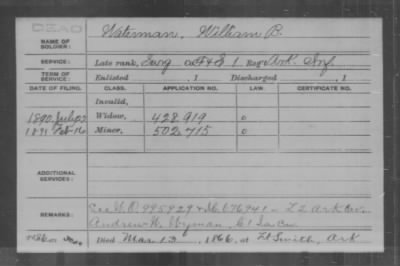 DEAD
NAME OF SOLDIER: Waterman, William B.
SERVICE: Late rank, Surg Co. F&S 1. Reg't Ark. Inf.
TERM OF SERVICE: Enlisted , 1 Discharged , 1
DATE OF FILING. CLASS. APPLICATION NO. LAW. CERTIFICATE NO.
Invalid,
1890 July 2 Widow, 428.919 o
1891 Feb-16 Minor, 502.715 o
ADDITIONAL SERVICES:
REMARKS: See W.O. 995929 & 676941 - L 2 Ark Cav.
Andrew W. Wyman, C 1 Ia Cav
Died Mar 13, 1866, at Ft Smith, Ark